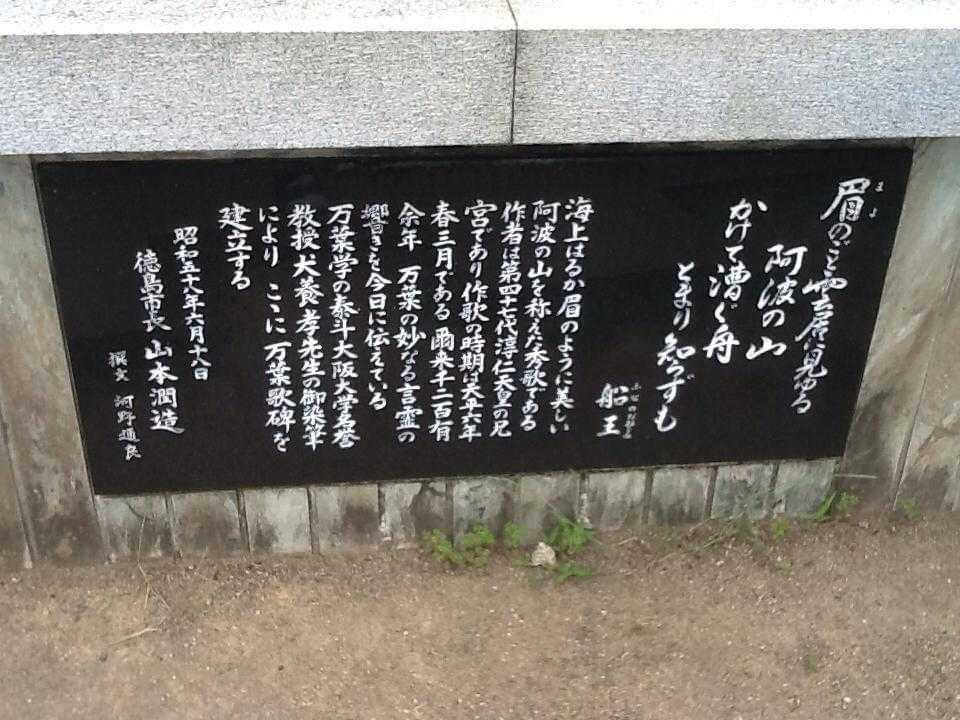 眉のごと雲居に見ゆる
まよ
阿波の山
かけて漕ぐ舟
とまり知らずも
船王
ふなのおおきみ
海上はるか眉のように美しい
阿波の山を称えた秀歌である
作者は第四十七代淳仁天皇の兄
宮であり作歌の時期は天平六年
春三月である 爾来千二百有
余年 万葉の妙なる言霊の
響きを今日に伝えている
万葉学の泰斗大阪大学名誉
教授犬養孝先生の御染筆
により ここに万葉歌碑を
建立する
昭和五十八年六月十六日
徳島市長 山本潤造
撰文 河野通良